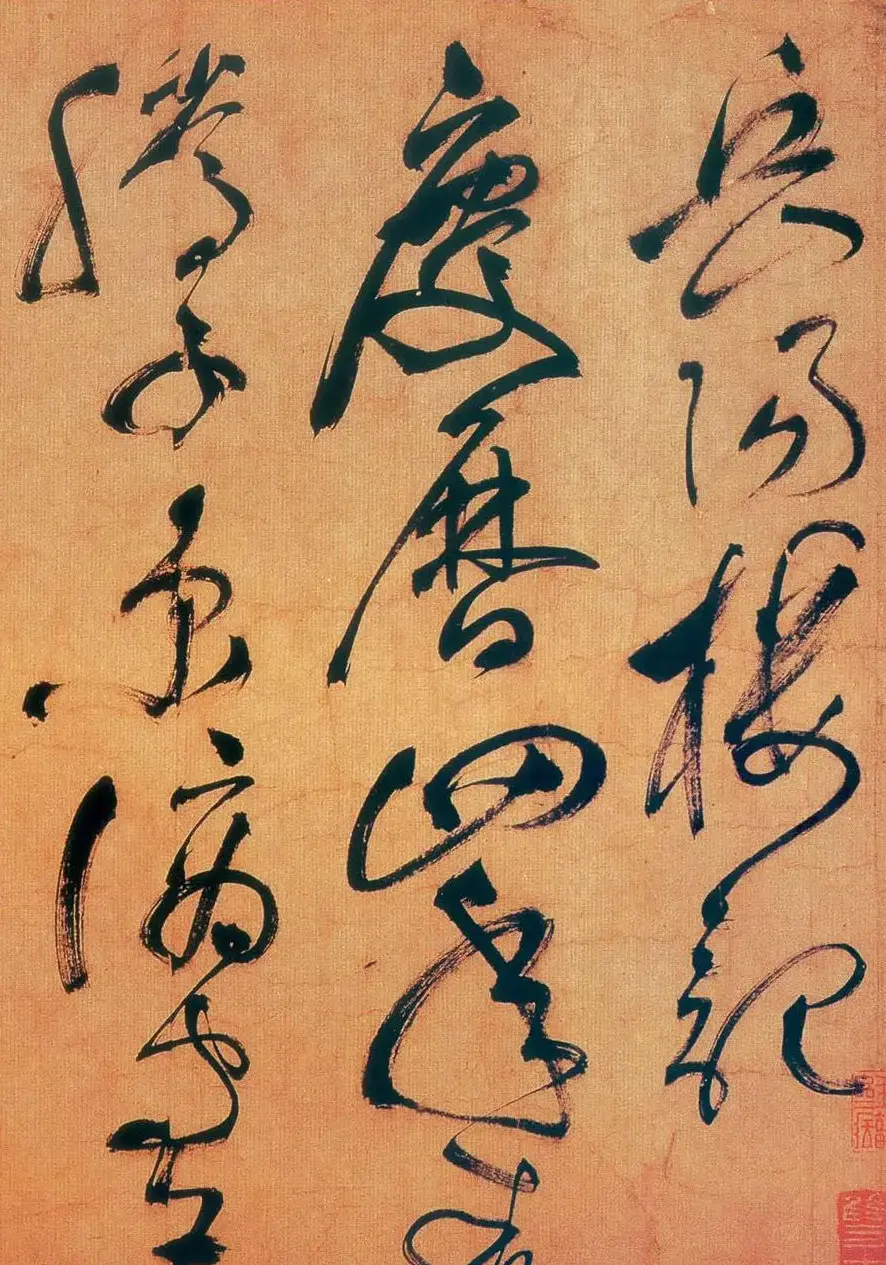 岳陽樓記
慶曆四年春
滕子京謫守